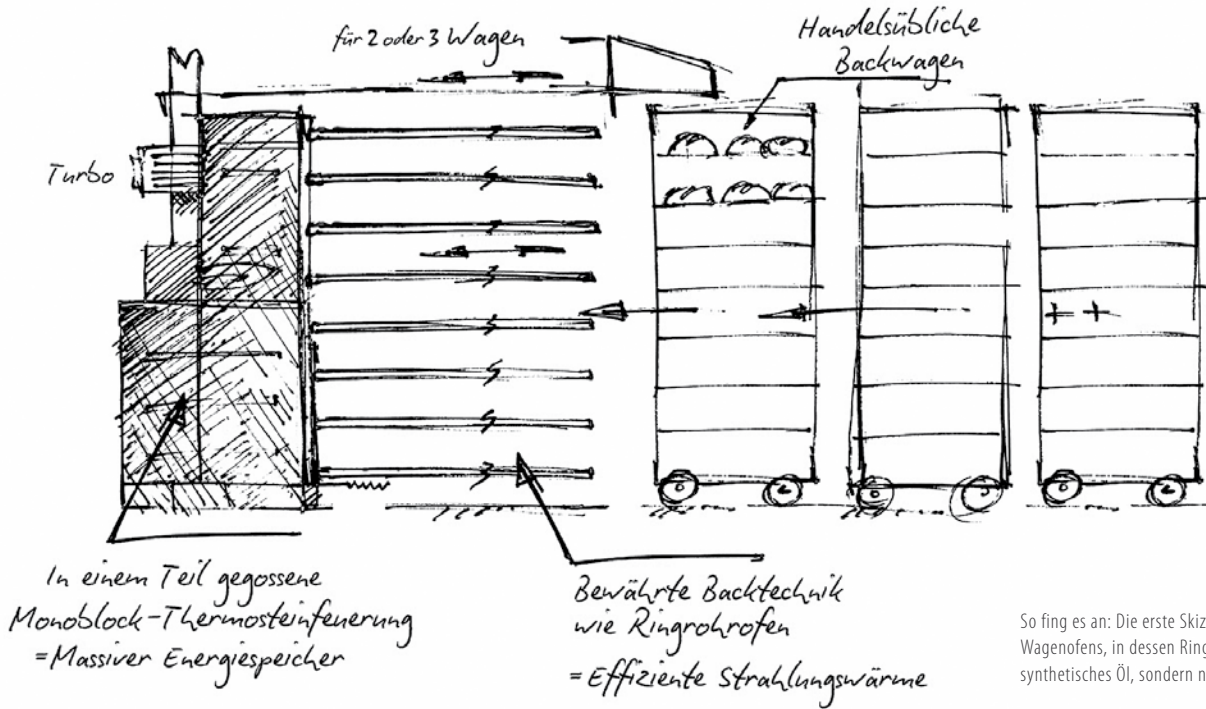 für 2 oder 3 Wagen
Handelsübliche
Backwagen
Turbo
In einem Teil gegossene
Monoblock-Thermosteinfeuerung
=Massiver Energiespeicher
Bewährte Backtechnik
wie Ringrohrofen
=Effiziente Strahlungswärme
So fing es an: Die erste Skiz
Wagenofens, in dessen Ring
synthetisches Öl, sondern n